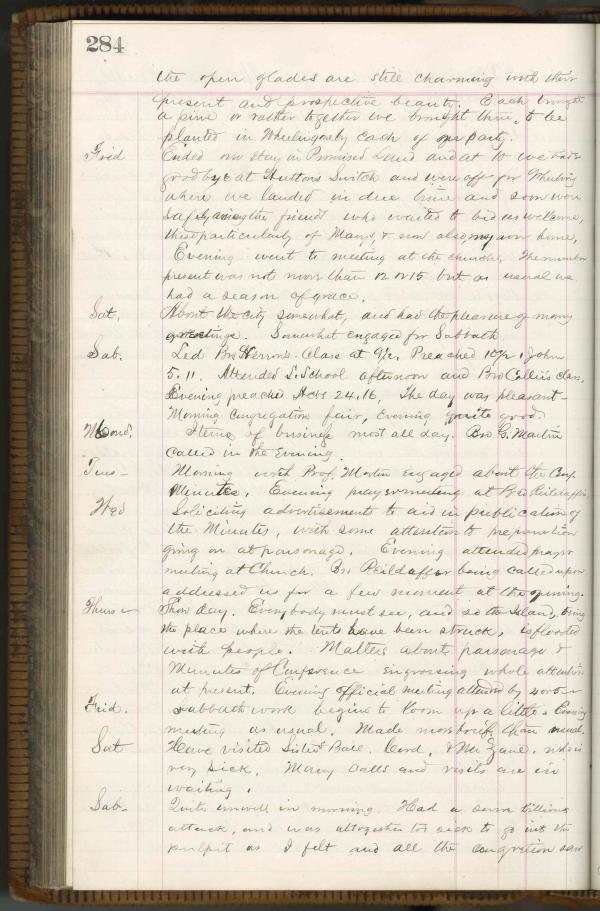 284
the open glades are still charming with their
present and prospective beauty. Each brought
a pine or rather together we brought three, to be
planted in Wheeling by each of our party.
Frid Ended our stay in Promised Land and at 10 we bade
goodbye at Huttons Switch and were off for Wheeling
where we landed in due time and soon were
safely among the friends who waited to bid us welcome,
this particularly of Mary's, & now also my own home,
Evening went to meeting at the church, The number
present was not more than 12 or 15 but as usual we
had a season of grace.
Sat. About the city somewhat, and had the pleasure of many
greetings. Somewhat engaged for Sabbath
Sab. Led Bro Herron's Class at 9½. Preached 10½ 1 John
5.11. Attended S. School afternoon and Bro Collier's class,
Evening preached Acts 24.16, The day was pleasant-
Morning congregation fair, Evening quite good
Mond. Items of business most all day. Bro G. Martin
called in the Evening.
Tues- Morning with Prof. Martin engaged about the Conf.
Minutes. Evening prayermeeting at Bro
Wed Soliciting advertisements to aid in publication of
the Minutes, with some attention to preparation
going on at parsonage. Evening attended prayer
meeting at Church. Bro being called upon
addressed us for a few moment at the opening.
Thurs- Show day. Everybody must see, and so the Island, being
the place where the tents have been struck, is flooded
with people. Matters about parsonage &
Minutes of Conference engrossing whole attention
at present. Evening official meeting attended by 4 or 5
Frid. Sabbath work begins to loom up a little. Evening
meeting as usual. Made more brief than usual.
Sat Have visited Sister Ball. Cord. & Mr Zane. who is
very sick. Many calls and visits are in
waiting.
Sab- Quite unwell in morning. Had a
attack, and was altogether too sick to go into the
pulpit as I felt and all the congregation saw